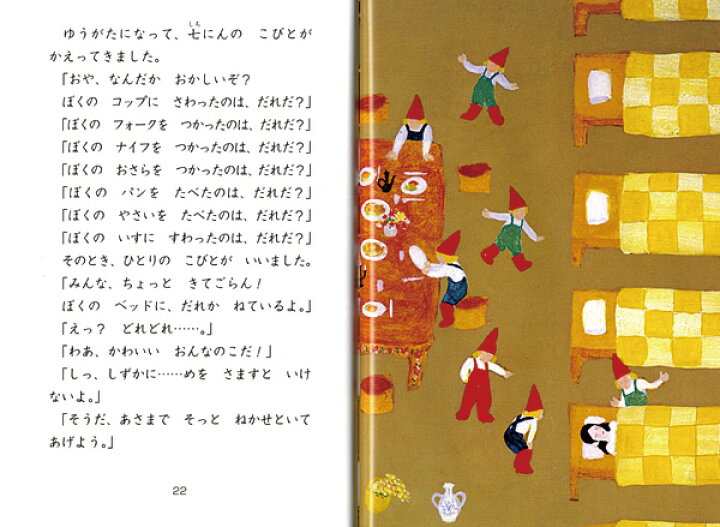 ゆうがたになって、七にんの　こびとが
しち
かえってきました。
「おや、なんだか　おかしいぞ？
ぼくの　コップに　さわったのは、だれだ？」
「ぼくの　フォークを　つかったのは、だれだ？」
「ぼくの　ナイフを　つかったのは、だれだ？」
「ぼくの　おさらを　つかったのは、だれだ？」
「ぼくの　パンを　たべたのは、だれだ？」
「ぼくの　やさいを　たべたのは、だれだ？」
「ぼくの　いすに　すわったのは、だれだ？」
そのとき、ひとりの　こびとが　いいました。
「みんな、ちょっと　きてごらん！
ぼくの　ベッドに、だれか　ねているよ。」
「えっ？　どれどれ……。」
「わあ、かわいい　おんなのこだ！」
「しっ、しずかに……めを　さますと　いけ
ないよ。」
「そうだ、あさまで　そっと　ねかせといて
あげよう。」
22